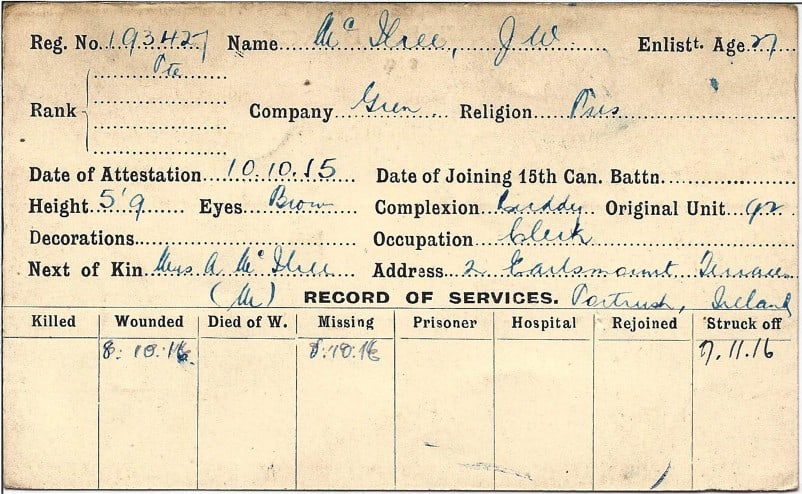 Reg. No. 193427 Name Mc Ilree, J W Enlistt. Age 27
Rank Pte Company Gren Religion Pres
Date of Attestation 10.10.15 Date of Joining 15th Can. Battn.
Height 5'9 Eyes Brow Complexion Ruddy Original Unit 92
Decorations Occupation Clerk
Next of Kin Mrs. A Mc Ilree Address 2 Earlsmount Terrace
(M) RECORD OF SERVICES. Portrush, Ireland
Killed Wounded Died of W. Missing Prisoner Hospital Rejoined Struck off
8.10.16 8.10.16 7.11.16